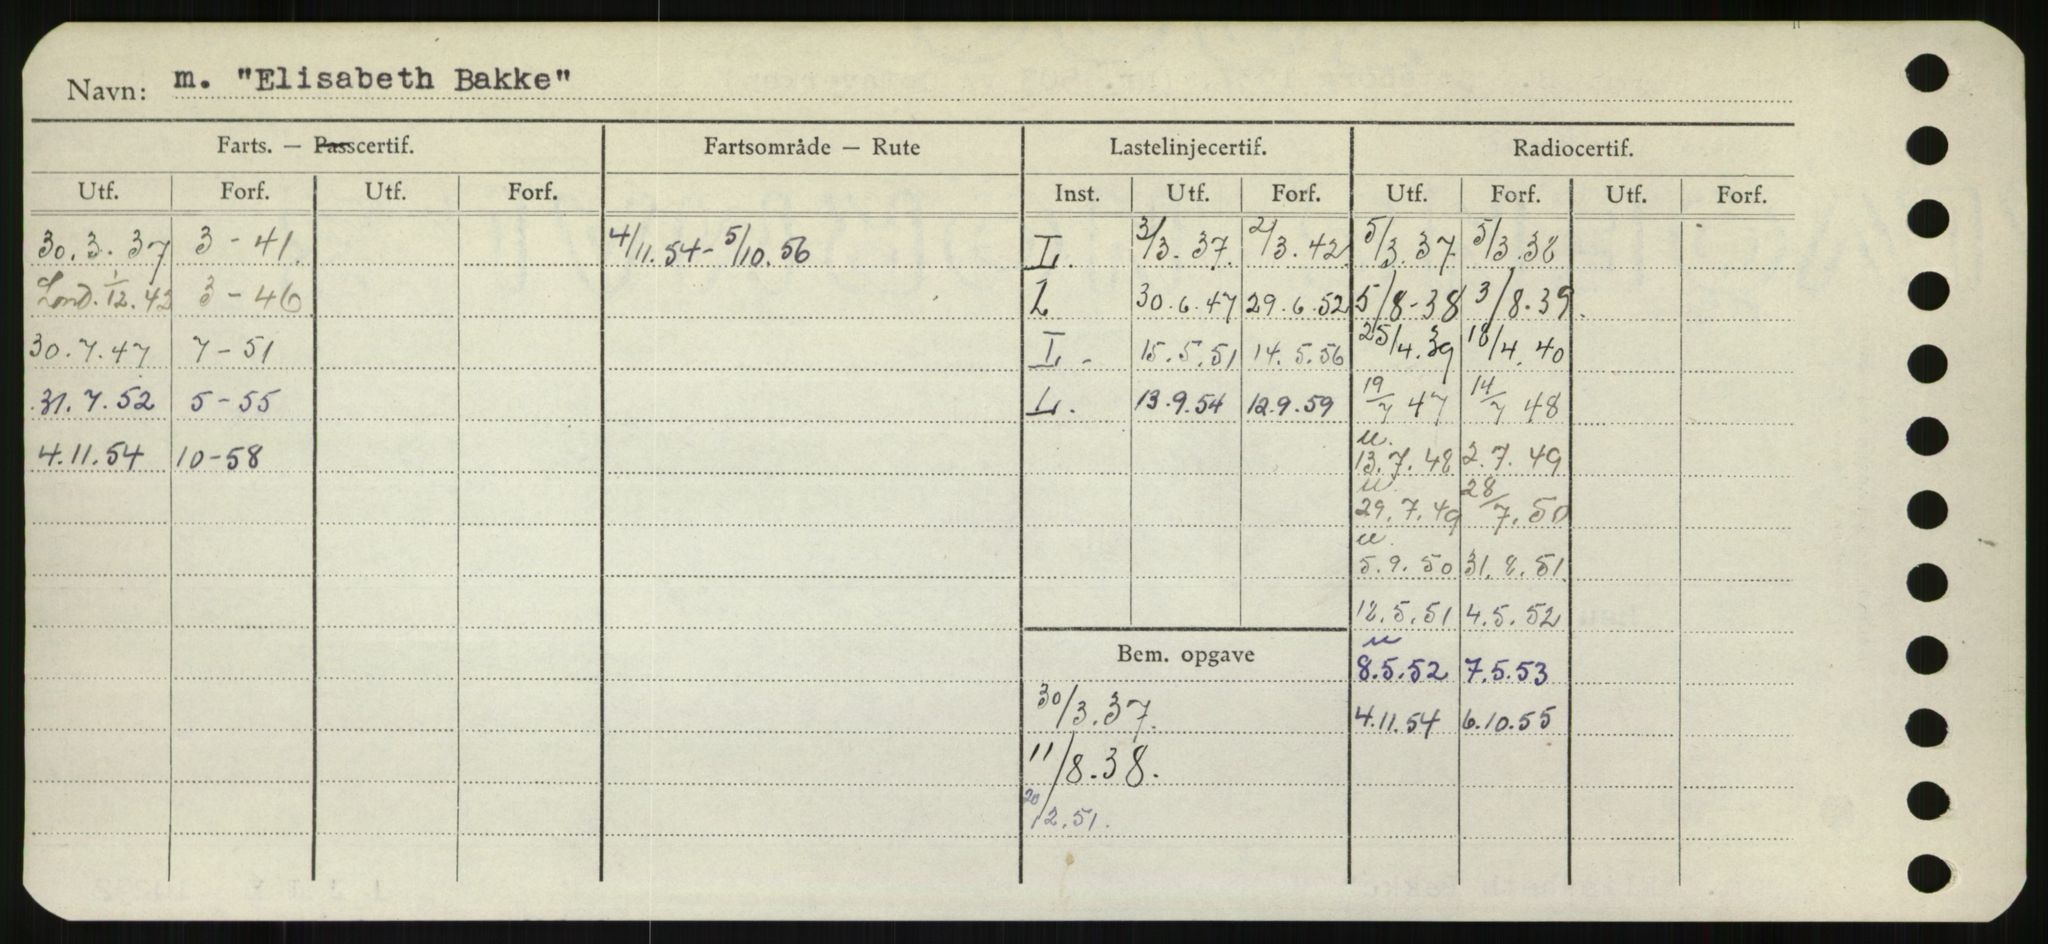 Navn: m. "Elisabeth Bakke"
Farts. — Passcertif. Fartsområde — Rute Lastelinjecertif. Radiocertif.
Utf. Forf. Utf. Forf. Inst. Utf. Forf. Utf. Forf. Utf. Forf.
30.3.37 3-41. 4/11.54-5/10.56 L. 3/3.37. 2/3.42 5/3.37 5/3.38
Lond. 1/12.42 3-46 L 30.6.47 29.6.52 5/8-38 3/8.39.
30.7.47 7-51 L. 15.5.51 14.5.56 25/4.39 18/4.40
31.7.52 5-55 L. 13.9.54 12.9.59 19/7 47 14/7 48
u.
4.11.54 10-58 13.7.48 2.7.49
u.
29.7.49 28/7.50
u.
5.9.50 31.8.51.
12.5.51 4.5.52
u
Bem. opgave 8.5.52 7.5.53
30/3.37. 4.11.54 6.10.55
11/8.38.
20/12.51.